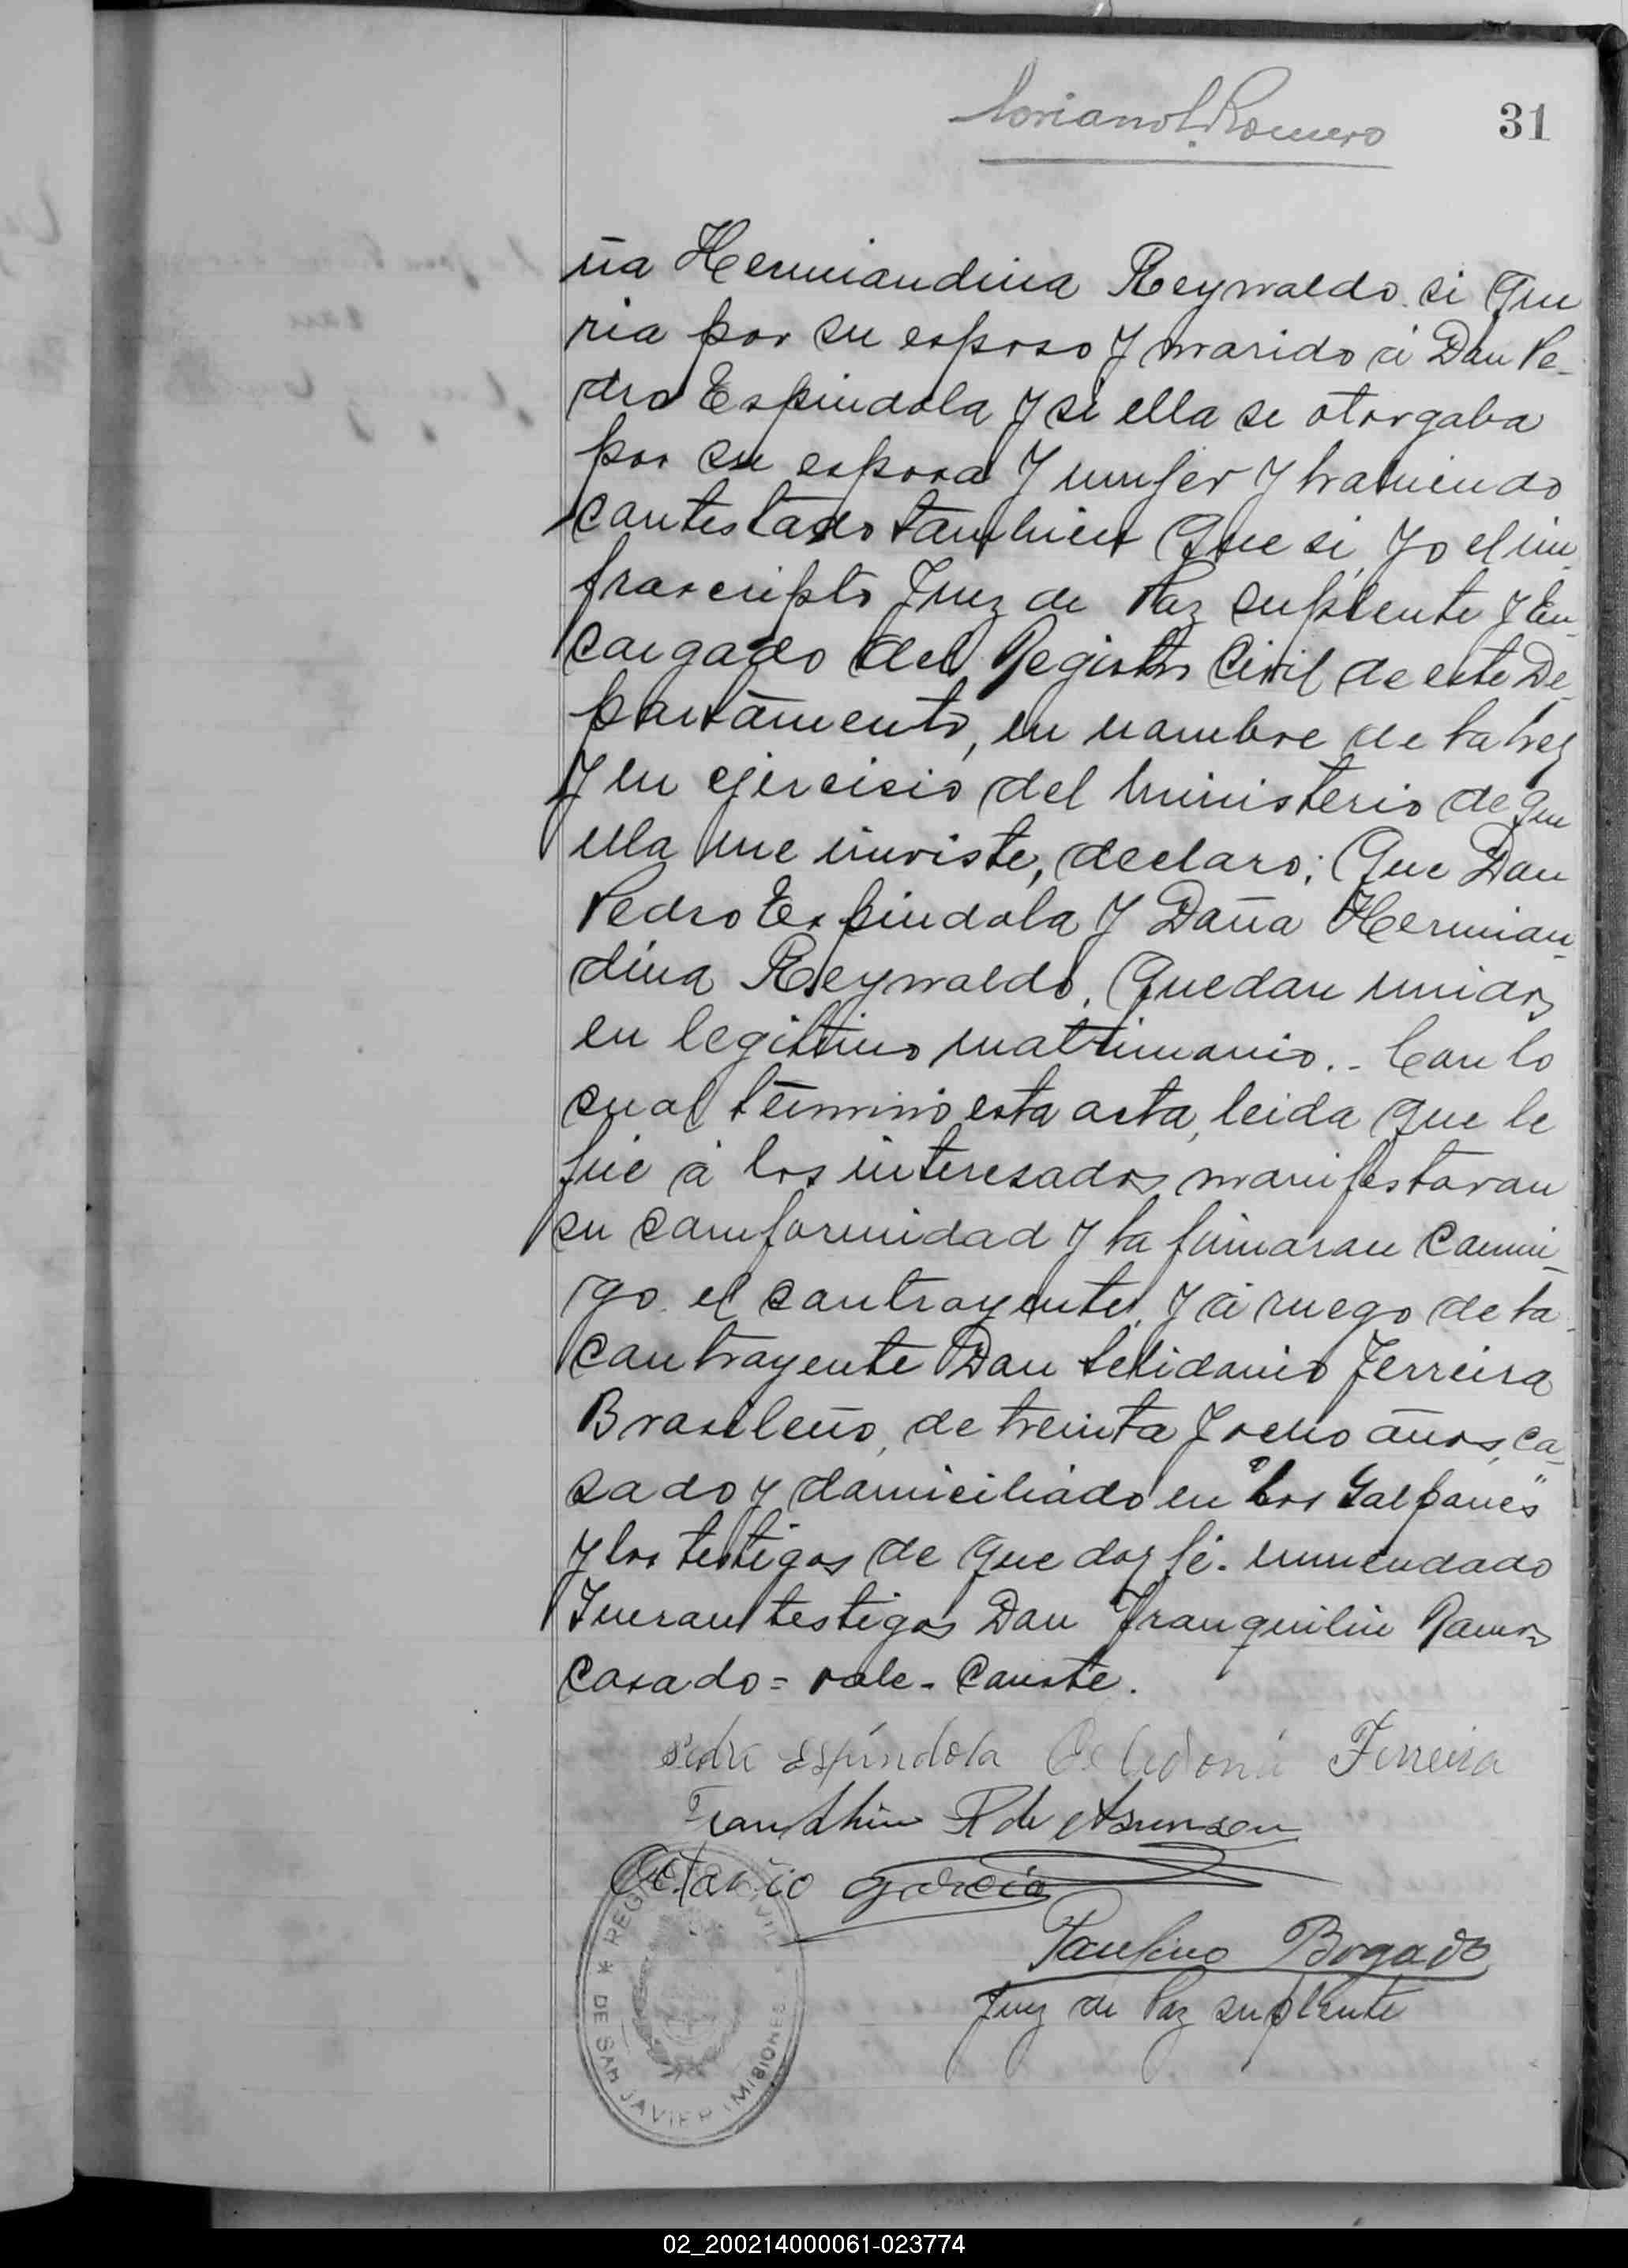 Soriano L. Romero
31
ña Hermiandina Reynaldo si que
ria por su esposo y marido á Don Pe-
dro Espindola y si ella se otorgaba
por su esposa y mujer y habiendo
contestado tambien que si, yo el in-
frascripto Juez de Paz suplente y En-
cargado del Registro Civil de este De-
partamento, en nombre de la ley
y en ejercisio del ministerio de que
ella me inviste, declaro; Que Don
Pedro Espindola y Doña Hermian-
dina Reynaldo, quedan unidos
en legitimo matrimonio.- Con lo
cual terminó esta acta, leida que le
fue á los interesados manifestaron
su comformidad y la firmaron conmi-
go el contrayente, y á ruego de la
contrayente Don Selidonio Ferreira
Brasileño, de treinta y ocho años, ca-
sado y domiciliado en "Los Galpones"
y los testigos de que doy fé. enmendado
Fueron testigos Don Tranquilin Ramos
casado = vale - Conste.
Pedro Espíndola Ferreira
R de Asunson
Octavio Garcia
Paulino Bogado
Juez de Paz suplente
REGISTRO CIVIL
* DE SAN JAVIER (MISIONES)
02_200214000061-023774